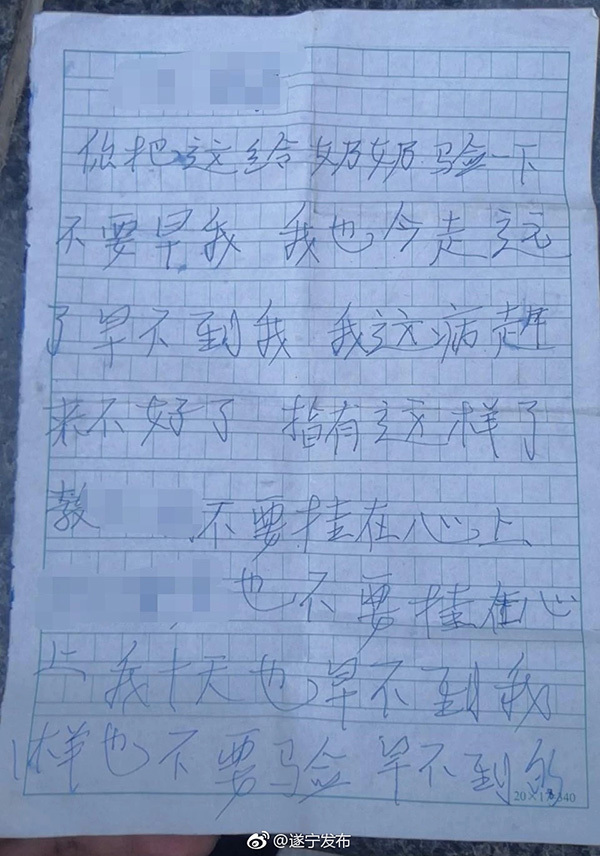 你把这给奶奶验一下
不要旱我 我也今走这元
了旱不到我 我这病赶
来不好了 指有这样了
教 不要挂在心上
也不要挂在心
上我十天也旱不到我
样也不要验 旱不到的
20×17=340
@遂宁发布